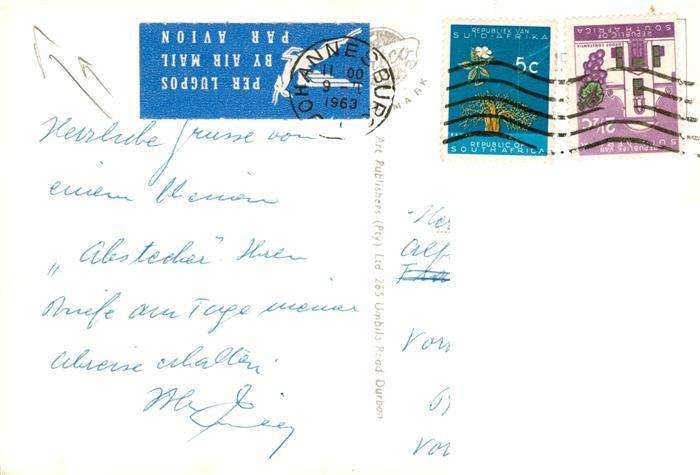 PER LUGPOS
BY AIR MAIL
PAR AVION
JOHANNESBURG
11 00
9
1963
MARK
REPUBLIEK VAN
SUID-AFRIKA
5c
REPUBLIC OF
SOUTH AFRICA
REPUBLIC OF
SOUTH AFRICA
GROOT CONSTANTIA
2½c
REPUBLIEK VAN
Herzliche Grüsse von
einem kleinen
„Abstecher". Ihren
Briefe am Tage meiner
Abreise erhalten.
Art Publishers (Pty) Ltd. 265 Umbilo Road Durban